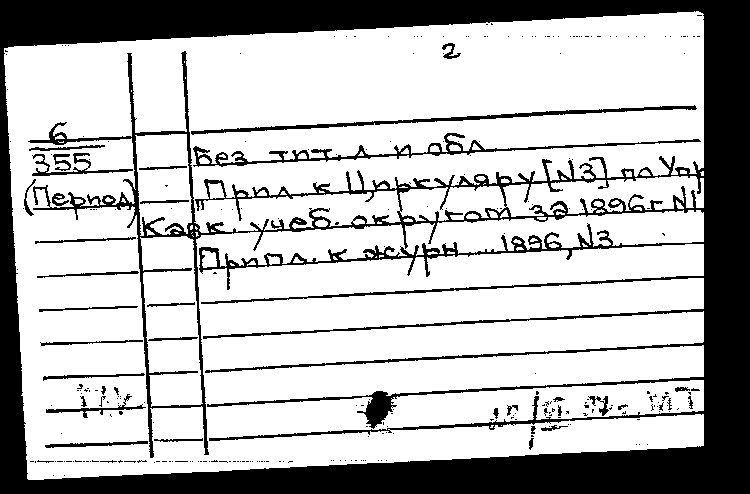 2
6
355
(Период)
Без тит. л и обл
"Прил. к Циркуляру [N3] по Упр
Кавк. учеб. округом за 1896 г. N1.
Припл. к журн .... 1896, N3.